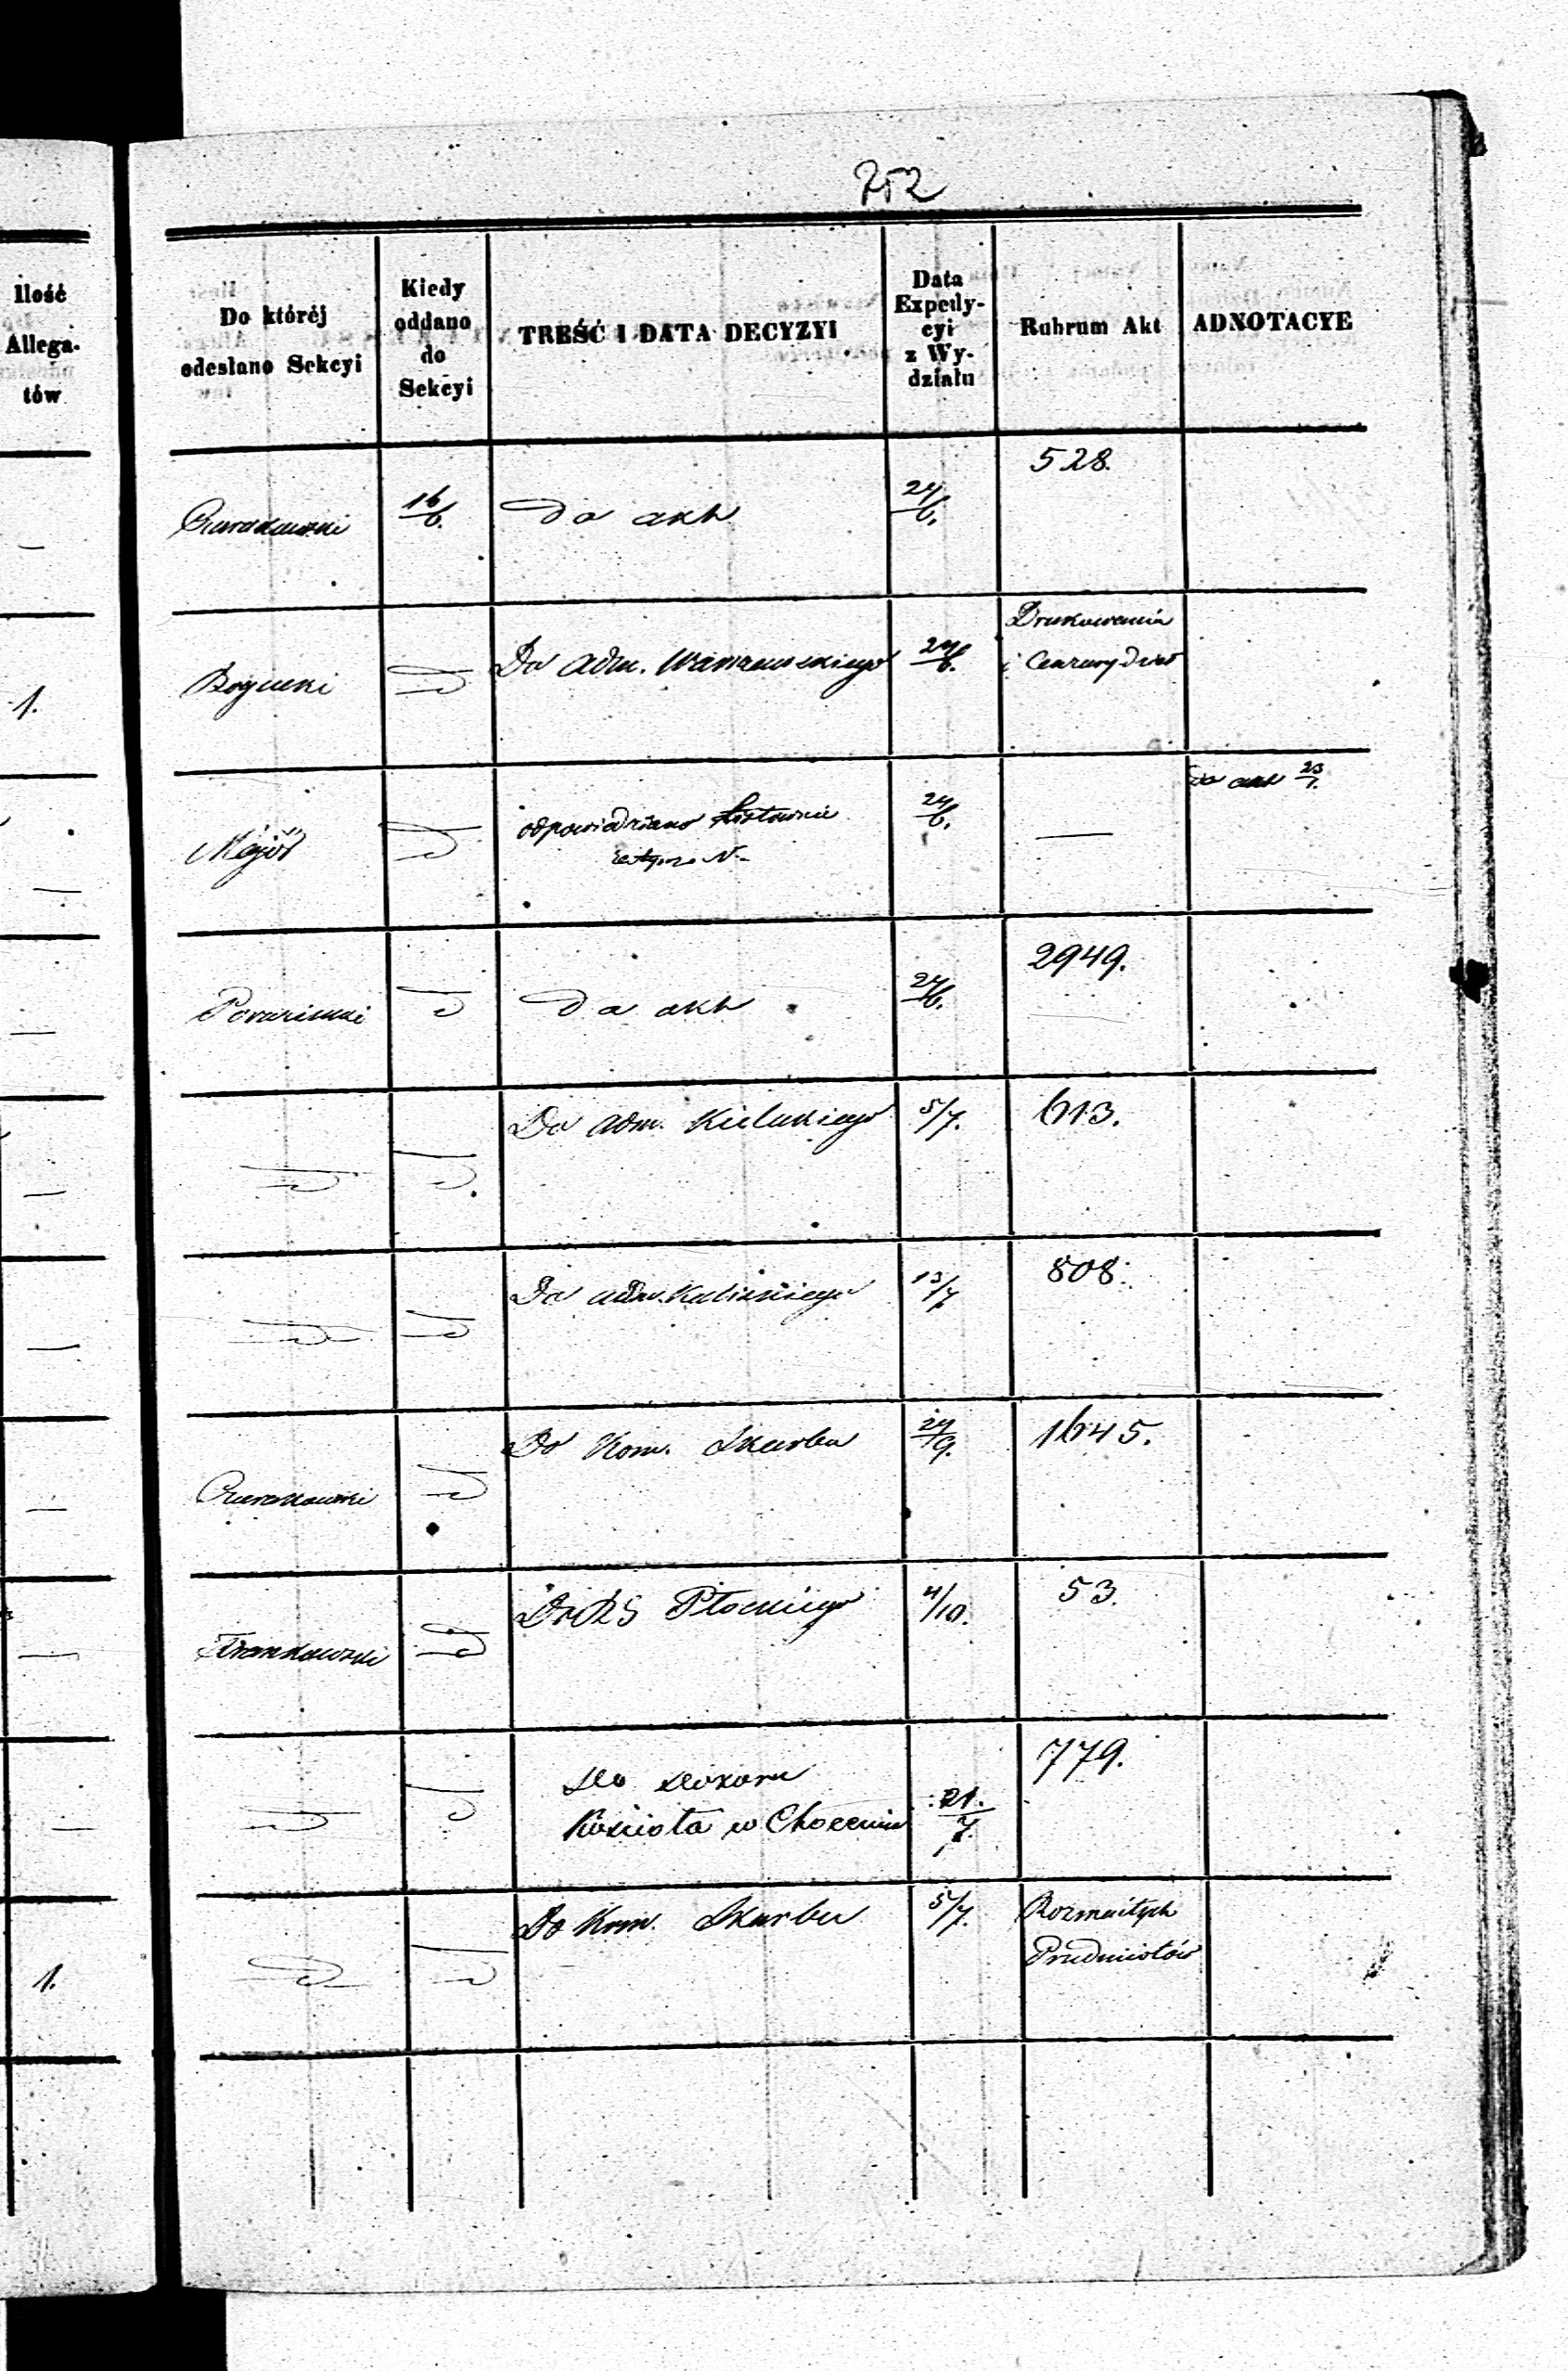 752
Ilość Allega- tów
Do któréj odesłano Sekcyi
Kiedy oddano do Sekcyi
TREŚĆ I DATA DECYZYI
Data Expedy- cyi z Wy- działu
Rubrum Akt
ADNOTACYE
— 16/6. Do akt 24/6. 528.
1. Bogucki Do Adm. Warszawskiego 24/6. Drukowania
i Cenzury Dzieł
— odpowiedziano 24/6. — Do akt 23/7.
— do akt 24/6. 2949.
— Do Adm. Kieleckiego 5/7. 613.
— Do Adm. Kaliskiego 13/7 808.
— Do Kom. Skarbu 24/9. 1645.
— Do RG Płockiego 4/10. 53.
— Do Dozoru 779.
Kościoła w Choceniu 21./7.
1. Do Kom. Skarbu 5/7. Rozmaitych
Przedmiotów